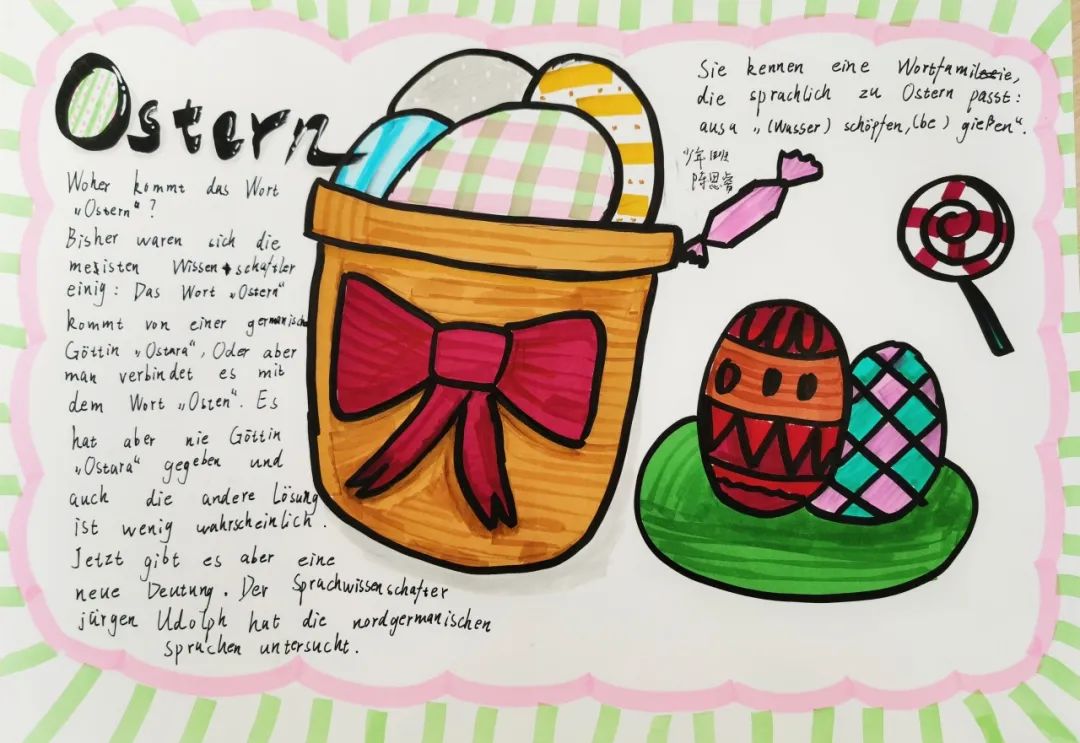 Ostern
Woher kommt das Wort
„Ostern“?
Bisher waren sich die
meisten Wissenschaftler
einig: Das Wort „Ostern“
kommt von einer germanische
Göttin „Ostara“, Oder aber
man verbindet es mit
dem Wort „Osten“. Es
hat aber nie Göttin
„Ostara“ gegeben und
auch die andere Lösung
ist wenig wahrscheinlich.
Jetzt gibt es aber eine
neue Deutung. Der Sprachwissenschafter
jürgen Udolph hat die nordgermanischen
sprachen untersucht.
Sie kennen eine Wortfamilie,
die sprachlich zu Ostern passt:
ausa „(Wasser) schöpfen, (be) gießen“.
少年
陈思睿